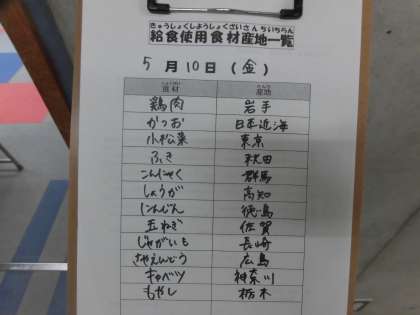 きゅうしょくしようしょくざいさんちいちらん
給食使用食材産地一覧
5月10日(金)
食材 産地
鶏肉 岩手
かつお 日本近海
小松菜 東京
ふき 秋田
こんにゃく 群馬
しょうが 高知
にんじん 徳島
玉ねぎ 佐賀
じゃがいも 長崎
さやえんどう 広島
キャベツ 神奈川
もやし 栃木